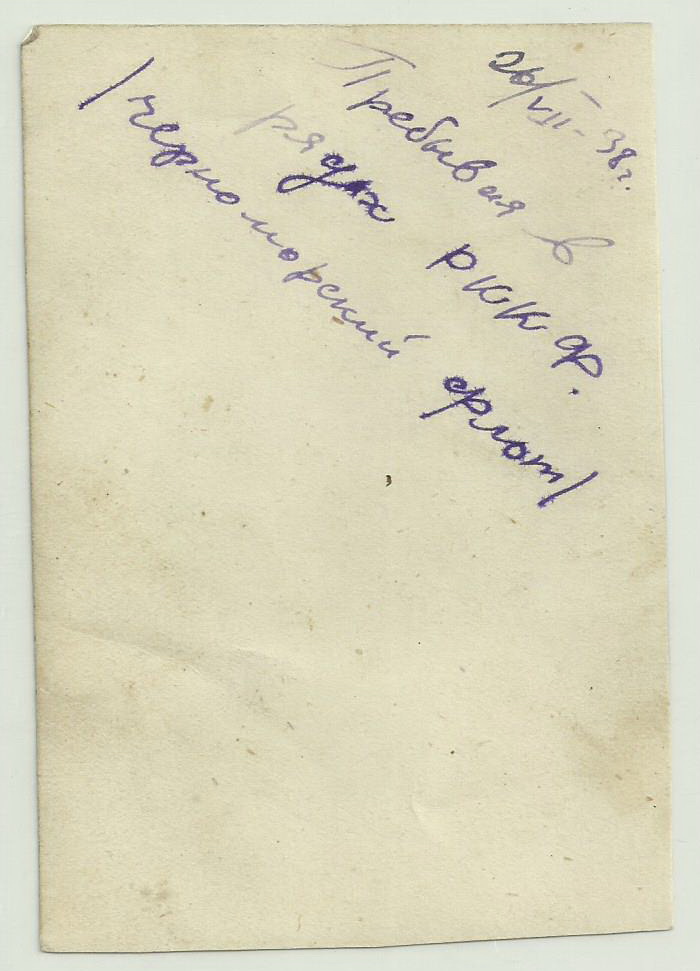 26/VII-38г.
Пребывая в
рядах РККФ.
/черноморский флот/